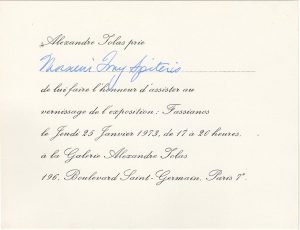 Alexandre Iolas prie
Monsieur Tony Spiteris
de lui faire l'honneur d'assister au
vernissage de l'exposition: Fassianos
le Jeudi 25 Janvier 1973, de 17 à 20 heures.
à la Galerie Alexandre Iolas
196, Boulevard Saint-Germain, Paris 7e.